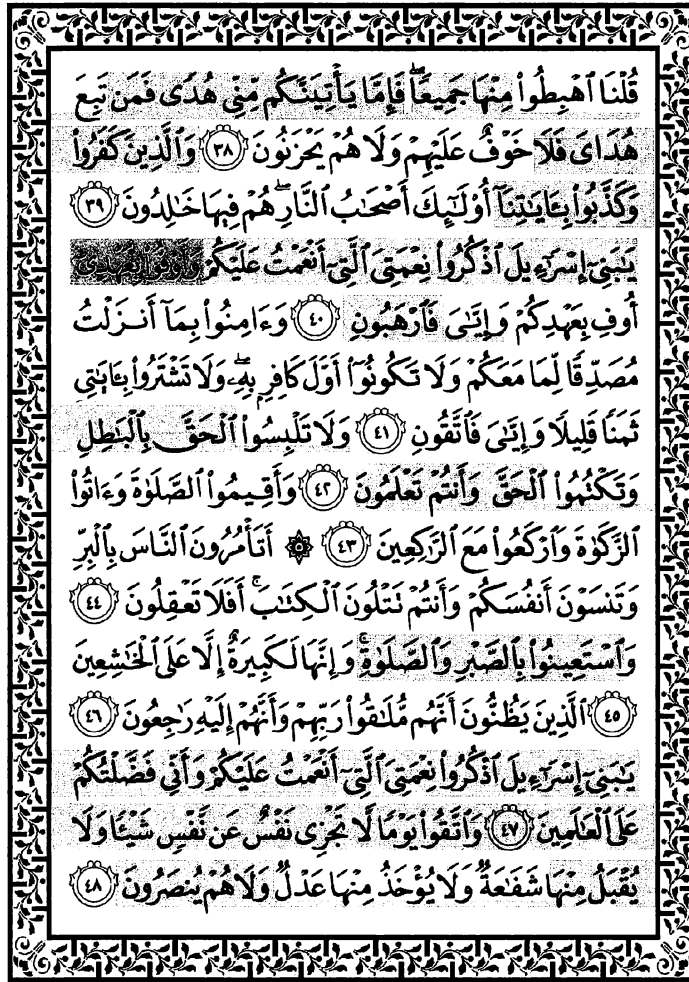 قُلْنَا ٱهْبِطُوا۟ مِنْهَا جَمِيعًۭا ۖ فَإِمَّا يَأْتِيَنَّكُم مِّنِّى هُدًۭى فَمَن تَبِعَ
هُدَاىَ فَلَا خَوْفٌ عَلَيْهِمْ وَلَا هُمْ يَحْزَنُونَ ٣٨ وَٱلَّذِينَ كَفَرُوا۟
وَكَذَّبُوا۟ بِـَٔايَـٰتِنَآ أُو۟لَـٰٓئِكَ أَصْحَـٰبُ ٱلنَّارِ ۖ هُمْ فِيهَا خَـٰلِدُونَ ٣٩
يَـٰبَنِىٓ إِسْرَٰٓءِيلَ ٱذْكُرُوا۟ نِعْمَتِىَ ٱلَّتِىٓ أَنْعَمْتُ عَلَيْكُمْ وَأَوْفُوا۟ بِعَهْدِىٓ
أُوفِ بِعَهْدِكُمْ وَإِيَّـٰىَ فَٱرْهَبُونِ ٤٠ وَءَامِنُوا۟ بِمَآ أَنزَلْتُ
مُصَدِّقًۭا لِّمَا مَعَكُمْ وَلَا تَكُونُوٓا۟ أَوَّلَ كَافِرٍۭ بِهِۦ ۖ وَلَا تَشْتَرُوا۟ بِـَٔايَـٰتِى
ثَمَنًۭا قَلِيلًۭا وَإِيَّـٰىَ فَٱتَّقُونِ ٤١ وَلَا تَلْبِسُوا۟ ٱلْحَقَّ بِٱلْبَـٰطِلِ
وَتَكْتُمُوا۟ ٱلْحَقَّ وَأَنتُمْ تَعْلَمُونَ ٤٢ وَأَقِيمُوا۟ ٱلصَّلَوٰةَ وَءَاتُوا۟
ٱلزَّكَوٰةَ وَٱرْكَعُوا۟ مَعَ ٱلرَّٰكِعِينَ ٤٣ ۞ أَتَأْمُرُونَ ٱلنَّاسَ بِٱلْبِرِّ
وَتَنسَوْنَ أَنفُسَكُمْ وَأَنتُمْ تَتْلُونَ ٱلْكِتَـٰبَ ۚ أَفَلَا تَعْقِلُونَ ٤٤
وَٱسْتَعِينُوا۟ بِٱلصَّبْرِ وَٱلصَّلَوٰةِ ۚ وَإِنَّهَا لَكَبِيرَةٌ إِلَّا عَلَى ٱلْخَـٰشِعِينَ
٤٥ ٱلَّذِينَ يَظُنُّونَ أَنَّهُم مُّلَـٰقُوا۟ رَبِّهِمْ وَأَنَّهُمْ إِلَيْهِ رَٰجِعُونَ ٤٦
يَـٰبَنِىٓ إِسْرَٰٓءِيلَ ٱذْكُرُوا۟ نِعْمَتِىَ ٱلَّتِىٓ أَنْعَمْتُ عَلَيْكُمْ وَأَنِّى فَضَّلْتُكُمْ
عَلَى ٱلْعَـٰلَمِينَ ٤٧ وَٱتَّقُوا۟ يَوْمًۭا لَّا تَجْزِى نَفْسٌ عَن نَّفْسٍۢ شَيْـًۭٔا وَلَا
يُقْبَلُ مِنْهَا شَفَـٰعَةٌۭ وَلَا يُؤْخَذُ مِنْهَا عَدْلٌۭ وَلَا هُمْ يُنصَرُونَ ٤٨